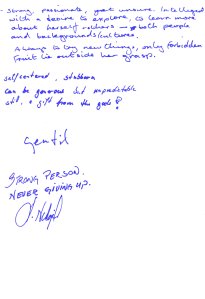 - Strong, passionate, great unsure. Intelligent
with a desire to explore, to learn more
about herself + others → both people
and backgrounds/cultures.
Always to try new things, only forbidden
fruit is outside her grasp.
self centered, stubborn
can be generous but unpredictable
still, a gift from the gods?
gentil
STRONG PERSON.
NEVER GIVING UP.